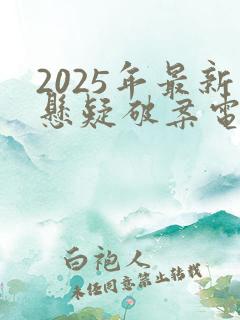 2025年最新
悬疑破案电
白袍人
未经同意禁止转载